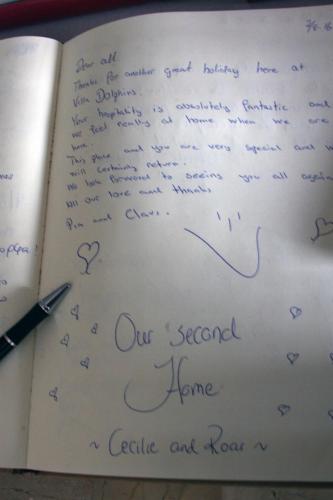 Dear all.
Thanks for another great holiday here at
Villa Dolphins.
Your hospitality is absolutely fantastic and
we feel really at home when we are
here.
This place and you are very special and
will certainly return.
We look forward to seeing you all again
All our love and thanks
and Claus.
Our second
Home
~ Cecilie and Roar ~